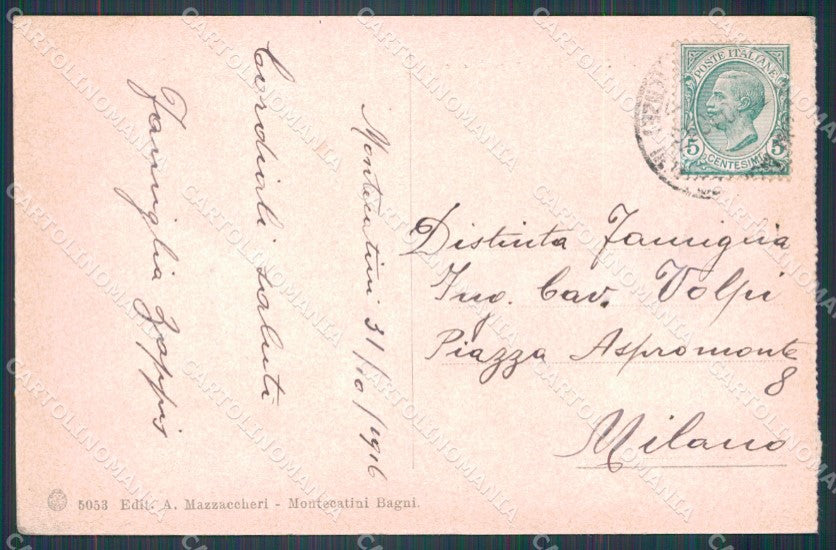 Montecatini 31/10/1916
Cordiali saluti
Famiglia Zappis
POSTE ITALIANE
5 5
CENTESIMI
Distinta Famiglia
Ing. Cav. Volpi
Piazza Aspromonte
8
Milano
5053 Edit. A. Mazzaccheri - Montecatini Bagni.
CARTOLINOMANIA